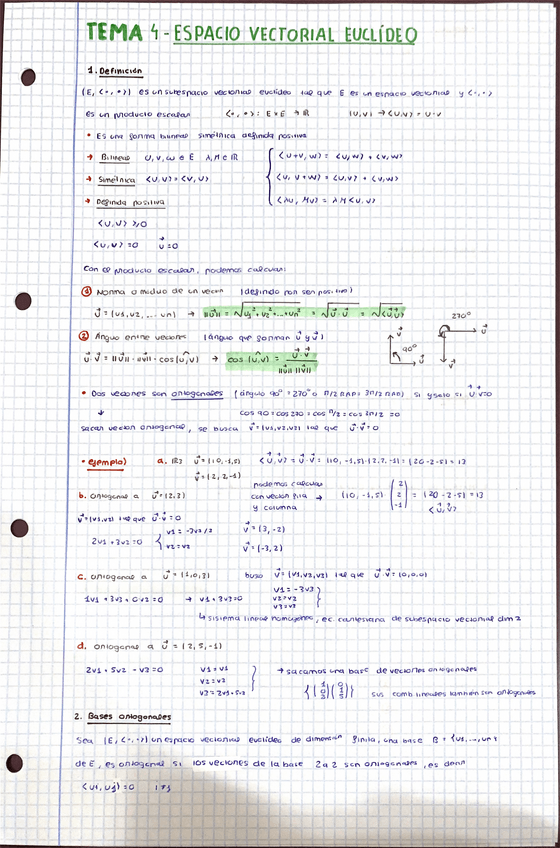 TEMA 4 - ESPACIO VECTORIAL EUCLÍDEO
1. Definición
(E, <·,·>) es un subespacio vectorial euclídeo tal que E es un espacio vectorial y <·,·>
es un producto escalar <·,·> : E x E → ℝ (u,v) → <u,v> = u·v
• Es una forma bilineal simétrica definida positiva
→ Bilineal u, v, w ∈ E λ, M ∈ ℝ
<u+v, w> = <u,w> + <v,w>
→ Simétrica <u,v> = <v,u>
<u, v+w> = <u,v> + <u,w>
→ Definida positiva
<λu, Mv> = λM<u,v>
<u,u> ≥ 0
<u,u> = 0 u⃗ = 0
Con el producto escalar, podemos calcular:
① Norma o módulo de un vector (definido por ser positivo)
② Ángulo entre vectores (ángulo que forman u⃗ y v⃗)
u⃗·v⃗ = ||u⃗||·||v⃗||·cos(u,v) → cos(u,v) = u⃗·v⃗ / ||u⃗|| ||v⃗||
90° 270°
• Dos vectores son ortogonales (ángulo 90° = 270° o π/2 rad = 3π/2 rad) si y solo si u⃗·v⃗=0
cos 90 = cos 270 = cos π/2 = cos 3π/2 = 0
sacar vector ortogonal, se busca v⃗ = (v1,v2,v3) tal que u⃗·v⃗ = 0
• ejemplo) a. ℝ3 u⃗ = (10,-1,5) <u⃗,v⃗> = u⃗·v⃗ = (10,-1,5)·(2,2,-1) = (20-2-5) = 13
v⃗ = (2,2,-1)
podemos calcular
b. ortogonal a u⃗ = (2,3) con vector fila → (10,-1,5) (2 2 -1) = (20-2-5) = 13
y columna <u⃗,v⃗>
v⃗ = (v1,v2) tal que u⃗·v⃗ = 0
2v1 + 3v2 = 0 v1 = -3v2/2 v⃗ = (3,-2)
v2 = v2 v⃗ = (-3,2)
c. ortogonal a u⃗ = (1,0,3) busco v⃗ = (v1,v2,v3) tal que u⃗·v⃗ = (0,0,0)
→ v1 + 3v3 = 0 v1 = -3v3
v2 = v2
v3 = v3
↳ sistema lineal homogéneo, ec. cartesiana de subespacio vectorial dim 2
d. ortogonal a u⃗ = (2,5,-1)
2v1 + 5v2 - v3 = 0 v1 = v1 → sacamos una base de vectores ortogonales
v2 = v2
v3 = 2v1 + 5v2 {(1 0 2)(0 1 5)} sus comb lineales también son ortogonales
2. Bases ortogonales
Sea (E, <·,·>) un espacio vectorial euclídeo de dimensión finita, una base B = {v1,...,vn}
de E, es ortogonal si los vectores de la base 2 a 2 son ortogonales, es decir